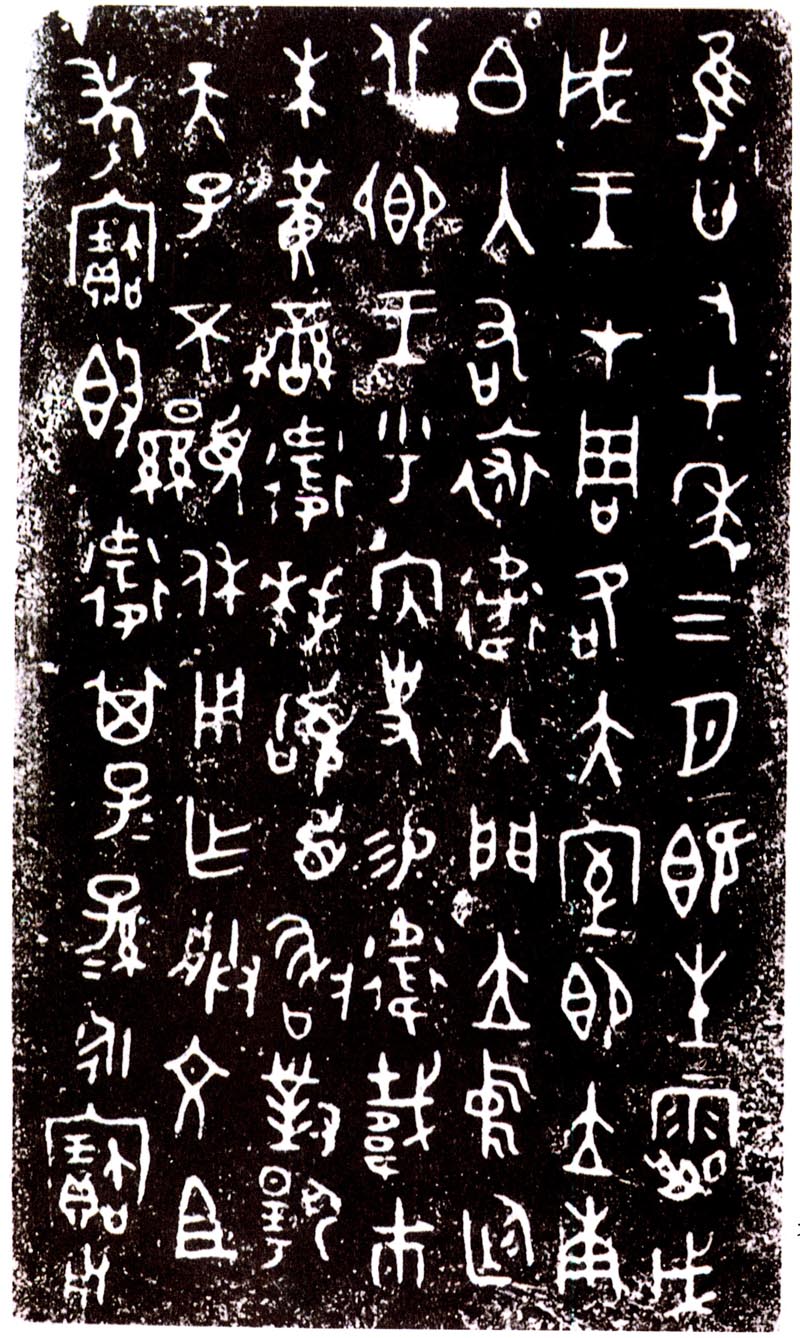 隹廿又七年三月既生霸戊
戌王才周各大室即立南
白入右裘衛入門立中廷
北鄉王乎內史易衛載巿
朱黃䜌衛拜𩒨首敢對揚
天子不顯休用乍朕文且
考寶𣪘衛其子=孫=永寶用